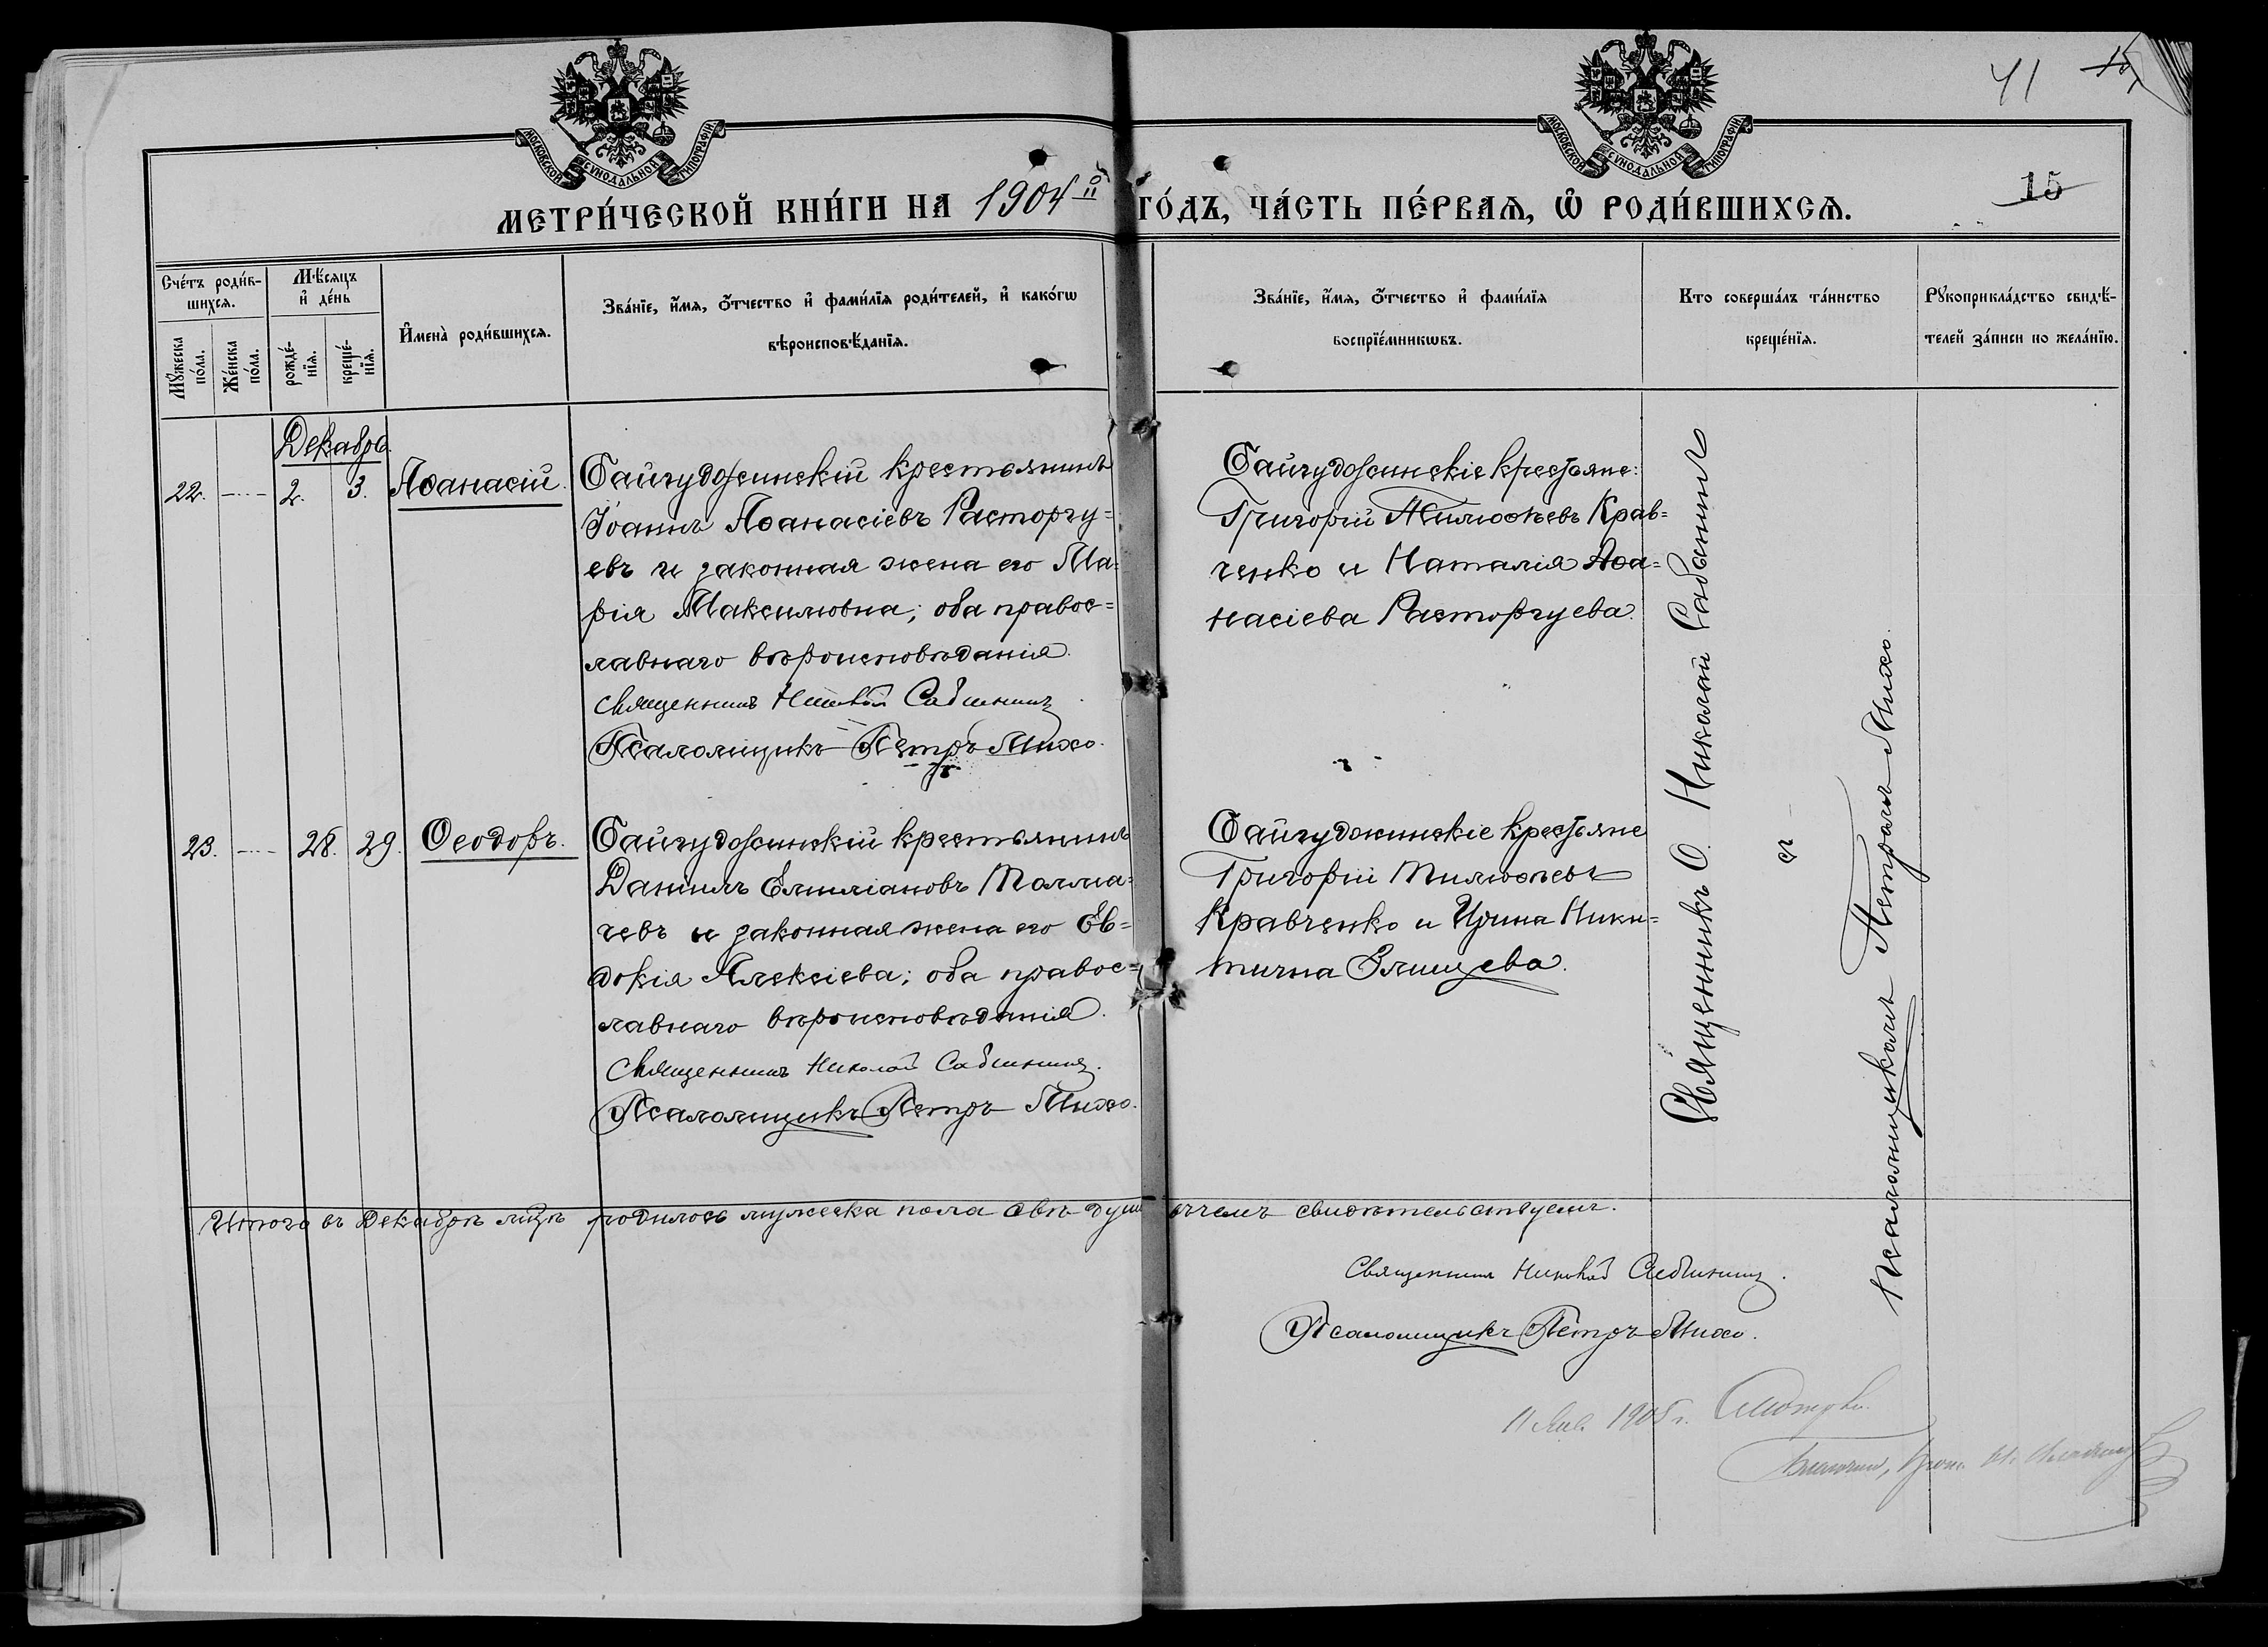 41 15
МОСКОВСКОЙ СѴНОДАЛЬНОЙ ТИПОГРАФІИ
МОСКОВСКОЙ СѴНОДАЛЬНОЙ ТИПОГРАФІИ
МЕТРИ́ЧЕСКОЙ КНИ́ГИ НА 1904й ГО́ДЪ, ЧА́СТЬ ПЕ́РВАѦ, Ѡ҆ РОДИ́ВШИХСѦ.
15
Сче́тъ роди́вшихсѧ.
Мꙋ́жеска по́ла.
Же́нска по́ла.
Мѣ́сѧцъ и҆ де́нь
рожде́нїѧ.
креще́нїѧ.
И҆мена̀ роди́вшихсѧ.
Зва́нїе, и҆́мѧ, ѻ҆́тчество и҆ фами́лїѧ роди́телей, и҆ како́гѡ
вѣроисповѣ́данїѧ.
Зва́нїе, и҆́мѧ, ѻ҆́тчество и҆ фами́лїѧ
воспрїе́мникѡвъ.
Кто соверша́лъ та́инство
креще́нїѧ.
Рꙋкоприкла́дство свидѣ́-
телей за́писи по жела́нїю.
Декабрь.
22. 2. 3. Аѳанасій. Байгудожинскій крестьянинъ
Іоаннъ Аѳанасіевъ Расторгу-
евъ и законная жена его Ма-
рія Максимовна; оба правос-
лавнаго вѣроисповѣданія.
Священникъ Николай Сабининъ
Псаломщикъ Петръ Михо.
Байгудожинскіе крестьяне:
Григорій Тимоѳѣевъ Крав-
ченко и Наталія Аѳа-
насіева Расторгуева.
23. 28. 29. Ѳеодоръ. Байгудожинскій крестьянинъ
Даніилъ Емиліановъ Толма-
чевъ и законная жена его Ев-
докія Алексіева; оба правос-
лавнаго вѣроисповѣданія.
Священникъ Николай Сабининъ.
Псаломщикъ Петръ Михо.
Байгудожинскіе крестьяне
Григорій Тимоѳѣевъ
Кравченко и Ирина Ники-
тична
Священникъ О. Николай Сабининъ
съ
Псаломщикомъ Петромъ Михо.
Итого въ Декабрѣ мѣцѣ родилось мужеска пола двѣ души въ чемъ свидѣтельствуемъ.
Священникъ Николай Сабининъ.
Псаломщикъ Петръ Михо.
11 Янв. 1905 г.